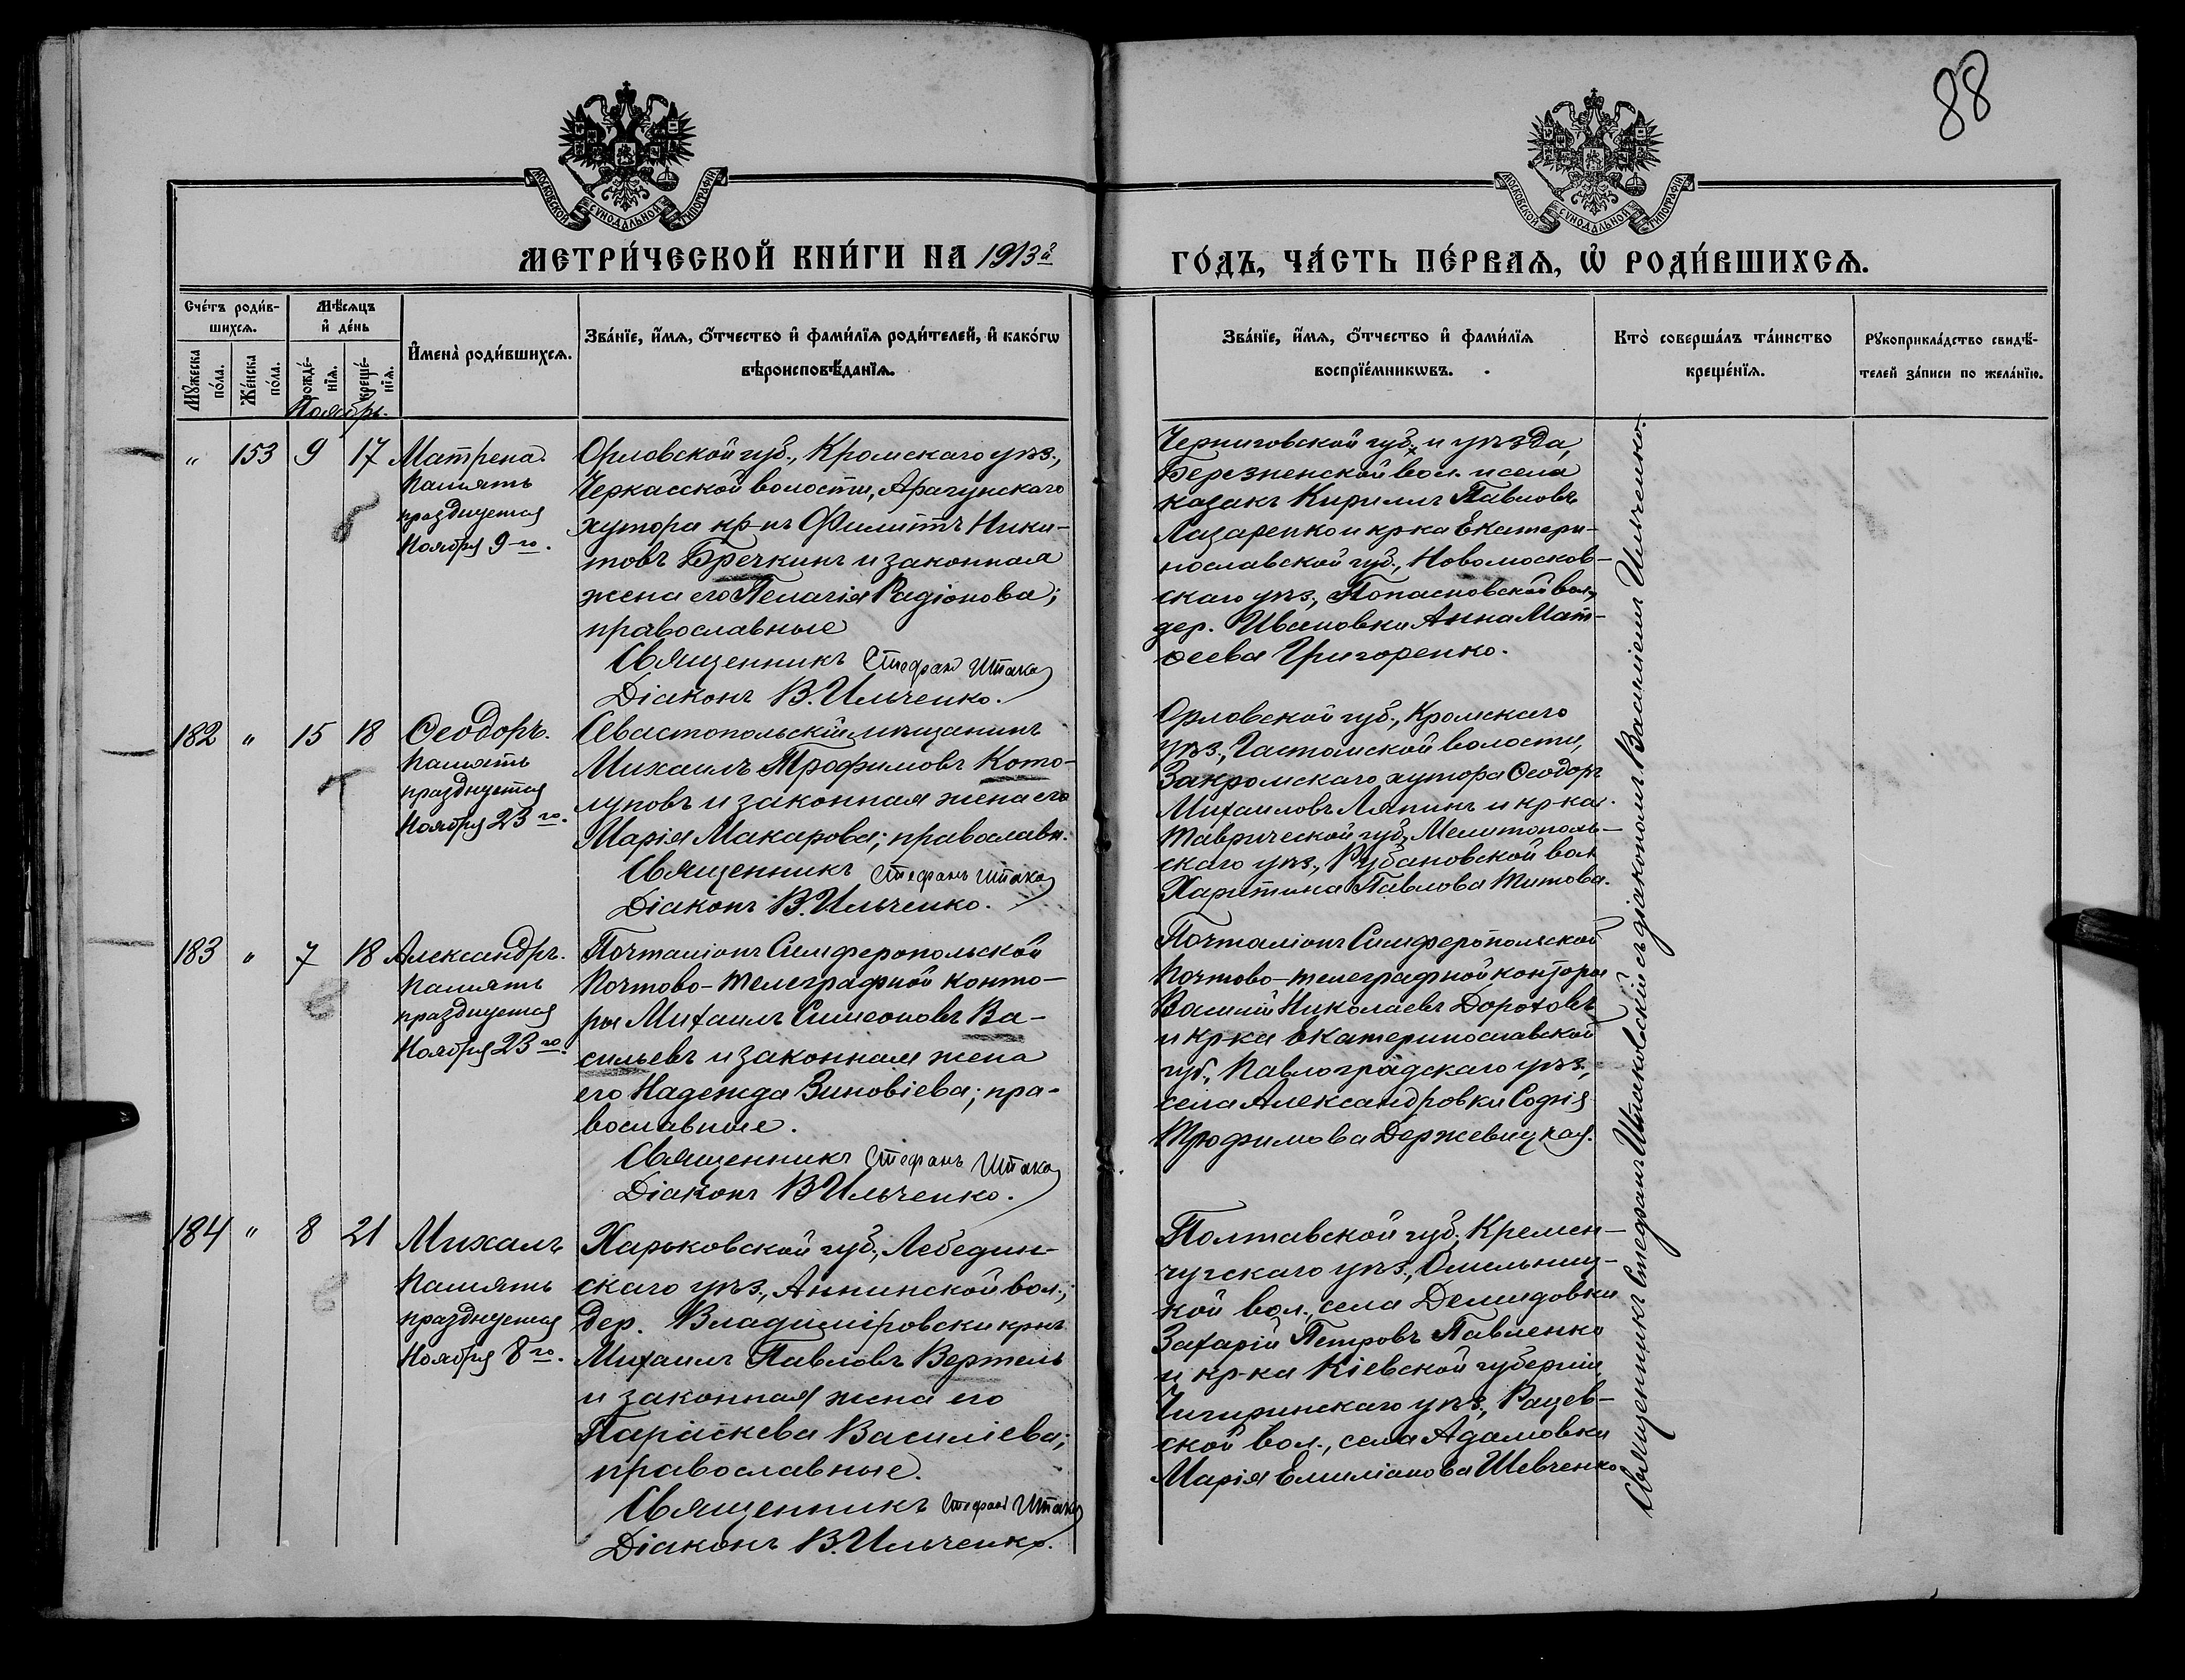 88
МОСКОВСКОЙ СѴНОДАЛЬНОЙ ТИПОГРАФІИ
МОСКОВСКОЙ СѴНОДАЛЬНОЙ ТИПОГРАФІИ
МЕТРИ́ЧЕСКОЙ КНИ́ГИ НА 1913й
ГО́ДЪ, ЧА́СТЬ ПЕ́РВАѦ, Ѡ҆ РОДИ́ВШИХСѦ.
Сче́тъ роди́в-
шихсѧ.
Мꙋ́жеска по́ла.
Же́нска по́ла.
Мѣ́сѧцъ
и҆ де́нь
рожде́-
нїѧ.
креще́-
нїѧ.
И҆мена̀ роди́вшихсѧ.
Зва́нїе, и҆́мѧ, ѻ҆́тчество и҆ фами́лїѧ роди́телей, и҆ како́гѡ
вѣроисповѣ́данїѧ.
Зва́нїе, и҆́мѧ, ѻ҆́тчество и҆ фами́лїѧ
воспрїе́мникѡвъ.
Кто̀ соверша́лъ та́инство
креще́нїѧ.
Рꙋкоприкла́дство свидѣ́-
телей за́писи по жела́нїю.
Ноябрь.
" 153 9 17 Матрена.
Память
празднуется
Ноября 9го.
Орловской губ., Кромскаго уѣз.,
Черкасской волости, Арагунскаго
хутора кр-нъ Филиппъ Ники-
товъ Бречкинъ и законная
жена его Пелагія Радіонова;
православные
Священникъ Стефанъ Шпако
Діаконъ В. Ильченко.
Черниговской губ. и уѣзда,
Березненской вол. и села
казакъ Кириллъ Павловъ
Лазаренко и кр-ка Екатери-
нославской губ., Новомосков-
скаго уѣз., Попасновской вол.,
дер. Ивановки Анна Мат-
ѳеева Григоренко.
182 " 15 18 Ѳеодоръ.
Память
празднуется
Ноября 23го.
Севастопольскій мѣщанинъ
Михаилъ Трофимовъ Кото-
луповъ и законная жена его
Марія Макарова; православн.
Священникъ Стефанъ Шпако
Діаконъ В. Ильченко.
Орловской губ., Кромскаго
уѣз., Гастомской волости,
Закромскаго хутора Ѳеодоръ
Михаиловъ Ляпинъ и кр-ка
Таврической губ., Мелитополь-
скаго уѣз., Рубановской вол.
Харитина Павлова Титова.
183 " 7 18 Александръ.
Память
празднуется
Ноября 23го.
Почталіонъ Симферопольской
Почтово-телеграфной конто-
ры Михаилъ Симеоновъ Ва-
сильевъ и законная жена
его Надежда Зиновіева; пра-
вославные.
Священникъ Стефанъ Шпако
Діаконъ В Ильченко.
Почталіонъ Симферопольской
Почтово-телеграфной конторы
Василій Николаевъ Дороховъ
и кр-ка Екатеринославской
губ., Павлоградскаго уѣз.,
села Александровки Софія
Трофимова Держевицкая.
184 " 8 21 Михаилъ
Память
празднуется
Ноября 8го.
Харьковской губ., Лебедин-
скаго уѣз., Аннинской вол.,
дер. Владиміровски крнъ
Михаилъ Павловъ Вертель
и законная жена его
Параскева Василіева;
православные.
Священникъ Стефанъ Шпако
Діаконъ В. Ильченко.
Полтавской губ., Кремен-
чугскаго уѣз., Омельниц-
кой вол., села Демидовки
Захарій Петровъ Павленко
и кр-ка Кіевской губерніи,
Чигиринскаго уѣз., Рацев-
ской вол., села Адамовки
Марія Емиліанова Шевченко
Священникъ Стефанъ Шпаковскій съ діакономъ Василіемъ Ильченко.